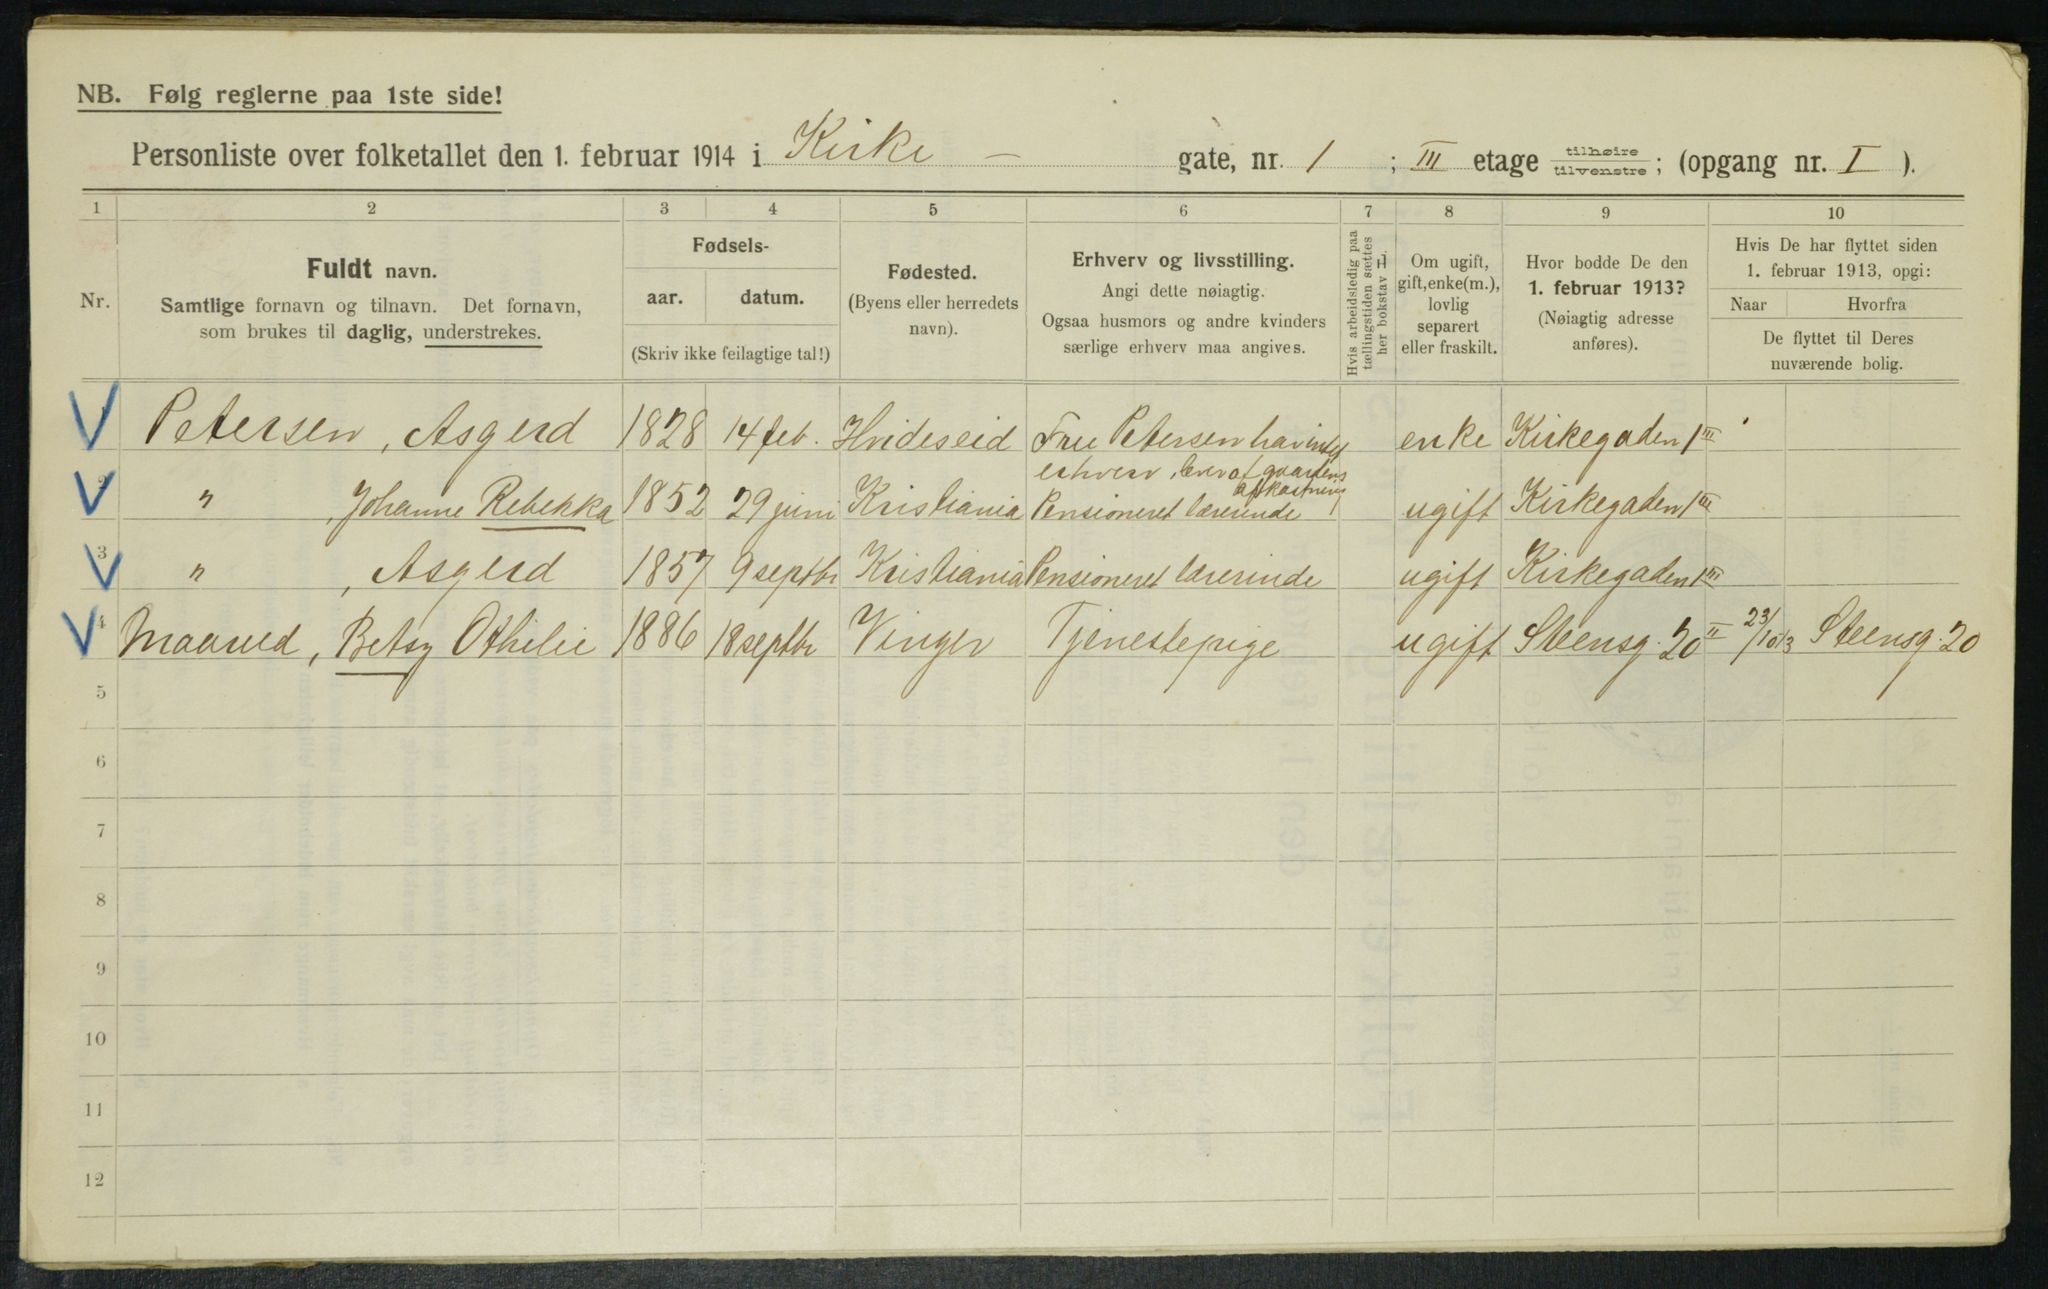 NB. Følg reglerne paa 1ste side!
Personliste over folketallet den 1. februar 1914 i Kirke - gate, nr. 1 ; III etage tilhøire/tilvenstre; (opgang nr. I ).
1 2 3 4 5 6 7 8 9 10
Nr.
Fuldt navn.
Samtlige fornavn og tilnavn. Det fornavn,
som brukes til daglig, understrekes.
Fødsels-
aar. datum.
(Skriv ikke feilagtige tal!)
Fødested.
(Byens eller herredets
navn).
Erhverv og livsstilling.
Angi dette nøiagtig.
Ogsaa husmors og andre kvinders
særlige erhverv maa angives.
Hvis arbeidsledig paa
tællingstiden sættes
her bokstav L
Om ugift,
gift, enke(m.),
lovlig
separert
eller fraskilt.
Hvor bodde De den
1. februar 1913?
(Nøiagtig adresse
anføres).
Hvis De har flyttet siden
1. februar 1913, opgi:
Naar Hvorfra
De flyttet til Deres
nuværende bolig.
1 Petersen, Asgerd 1828 14 feb. Hvideseid Frue Petersen har intet enke Kirkegaden 1 III
erhverv, lever af gaardens
afkastning
2 " , Johanne Rebekka 1852 29 juni Kristiania Pensioneret lærerinde ugift Kirkegaden 1 III
3 " , Asgerd 1857 9 septbr Kristiania Pensioneret lærerinde ugift Kirkegaden 1 III
4 Maarud, Betsy Othilie 1886 18 septbr Vinger Tjenestepige ugift Steensg. 20 II 23/10 13 Steensg. 20
5
6
7
8
9
10
11
12